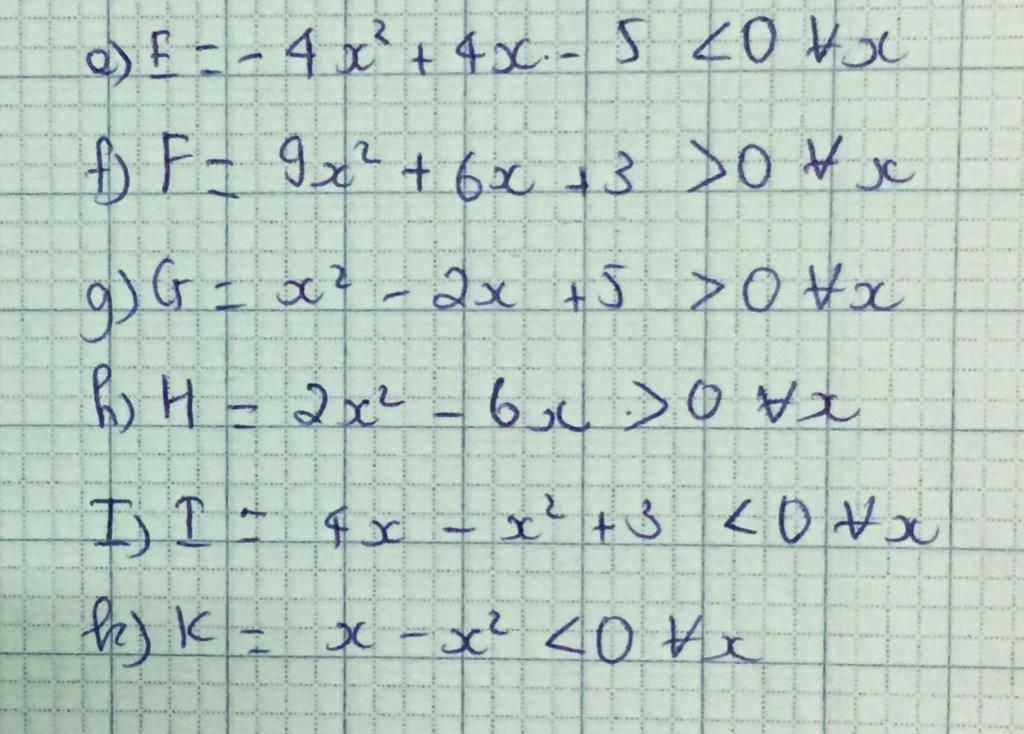 e) E = - 4x² + 4x - 5 < 0 ∀x
f) F = 9x² + 6x + 3 > 0 ∀x
g) G = x² - 2x + 5 > 0 ∀x
h) H = 2x² - 6x > 0 ∀x
I) I = 4x - x² + 3 < 0 ∀x
k) K = x - x² < 0 ∀x